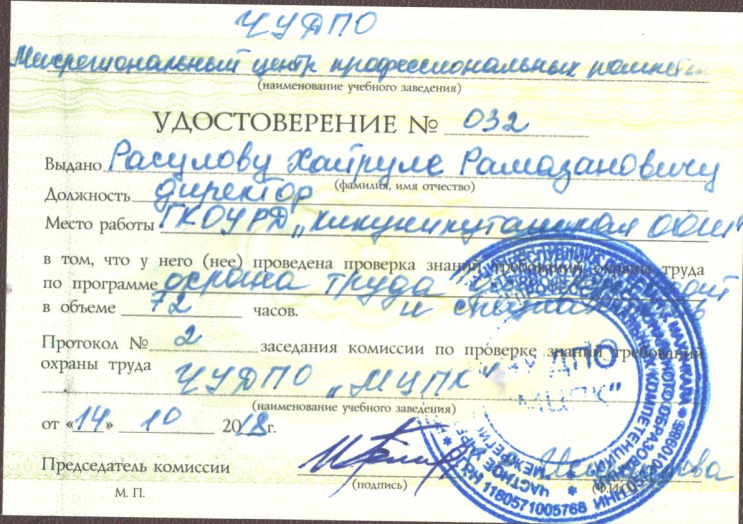 ЧУДПО
Межрегиональный центр профессиональных
(наименование учебного заведения)
УДОСТОВЕРЕНИЕ № 032
Выдано Расулову Хайруле Рамазановичу
(фамилия, имя отчество)
Должность директор
Место работы ГКОУ РД „
в том, что у него (нее) проведена проверка знаний требований охраны труда
по программе охрана труда
в объеме 72 часов. и
Протокол № 2 заседания комиссии по проверке знаний требований
охраны труда
ЧУДПО „МЦПК"
(наименование учебного заведения)
от «14» 10 2018г.
Председатель комиссии
(подпись)
М. П.
ЧУДПО
"МЦПК"
ЧАСТНОЕ
1180571005768 ИНН